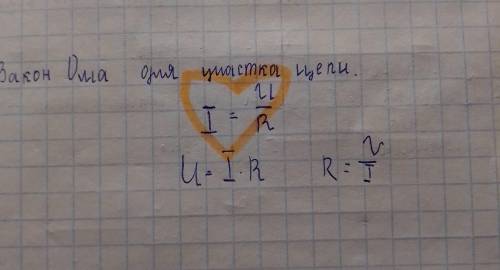 Закон Ома для участка цепи.
I = U/R
U = I · R R = U/I